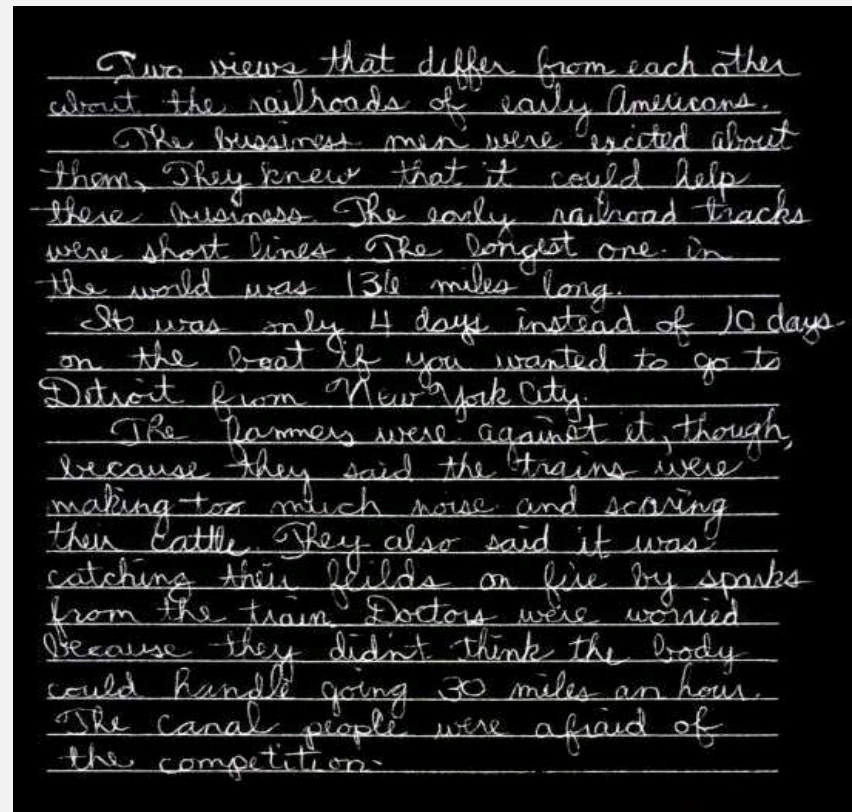 Two views that differ from each other
about the railroads of early Americans.
The bussiness men were excited about
them. They knew that it could help
there business. The early railroad tracks
were short lines. The longest one in
the world was 136 miles long.
It was only 4 days instead of 10 days
on the boat if you wanted to go to
Detroit from New York City.
The farmers were against it, though,
because they said the trains were
making too much noise and scaring
their cattle. They also said it was
catching their feilds on fire by sparks
from the train. Doctors were worried
because they didn't think the body
could handle going 30 miles an hour.
The canal people were afraid of
the competition.